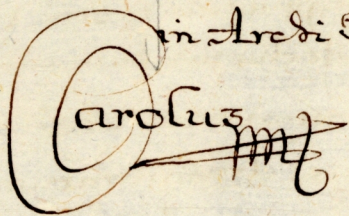 in Archi
Carolus